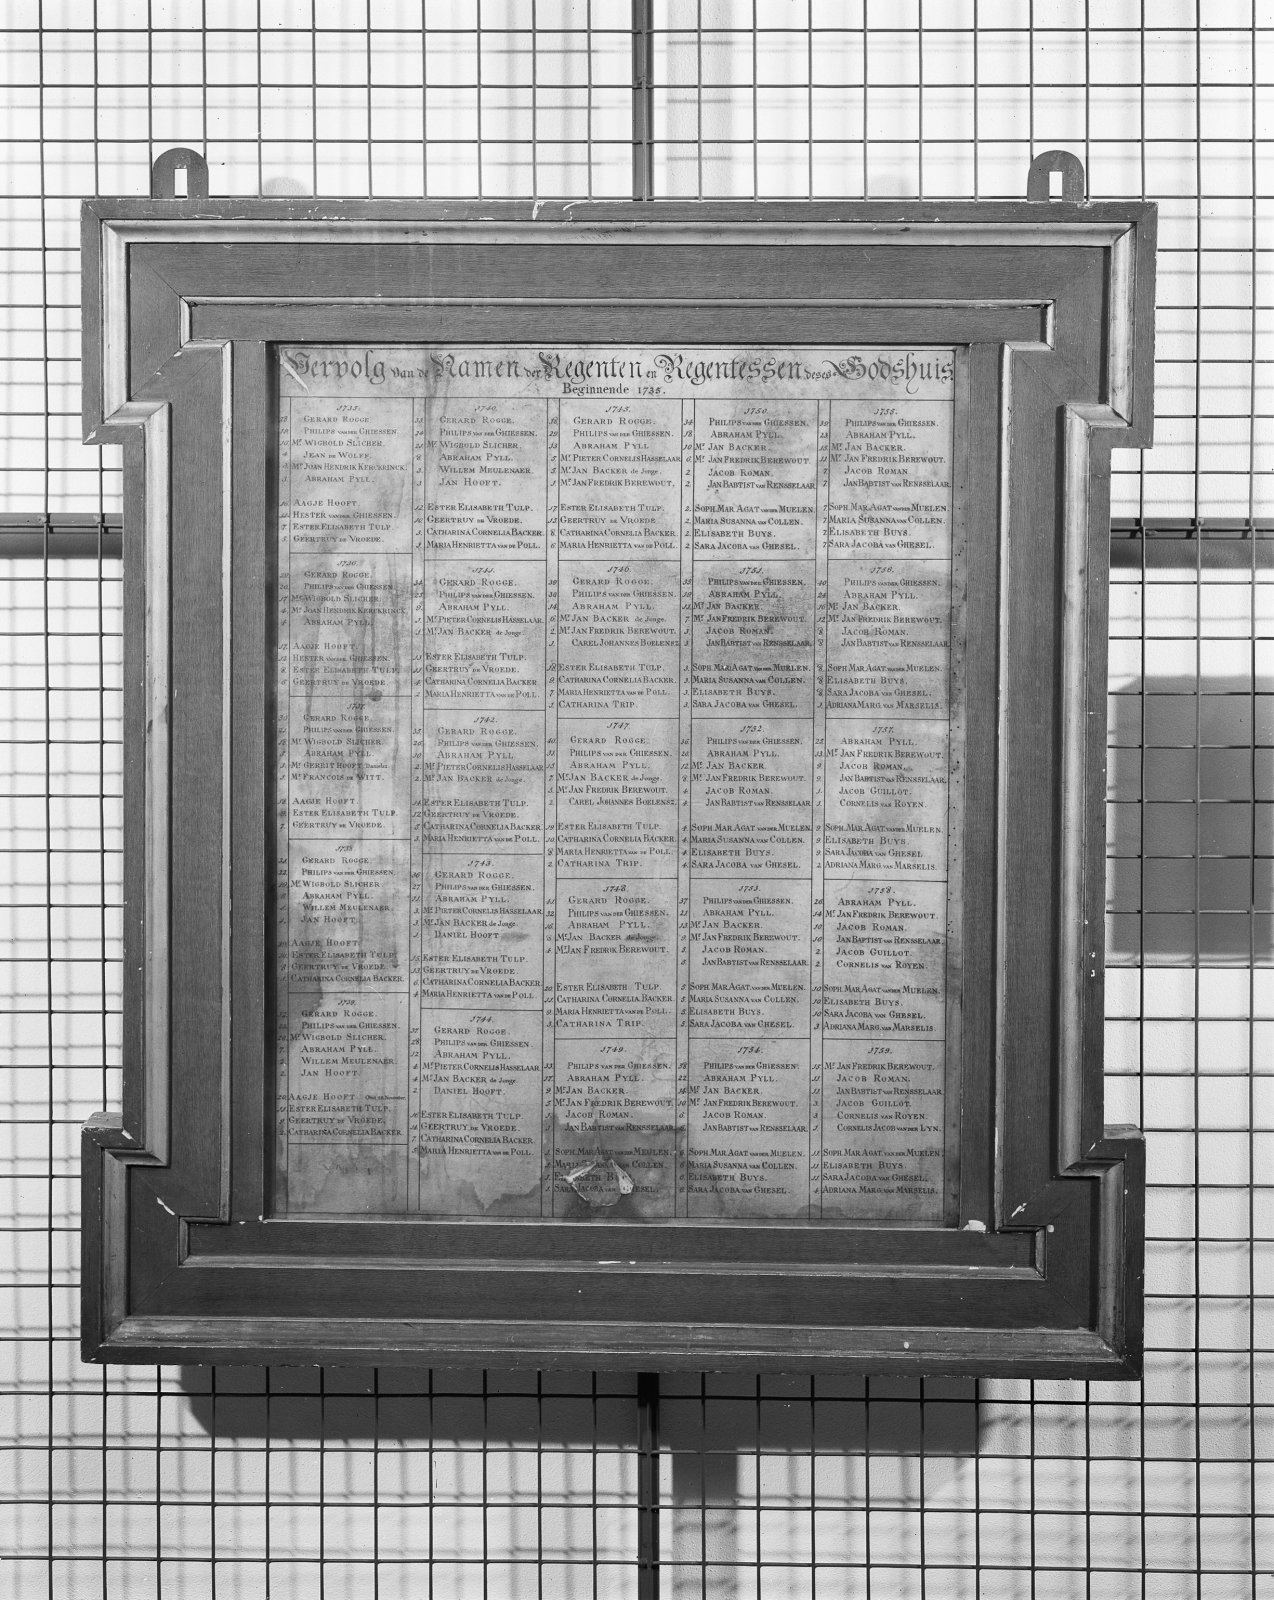 Vervolg van de Namen der Regenten en Regentessen deses Godshuis
Beginnende 1735.
1735.
GERARD ROGGE
PHILIPS VAN DER GHIESSEN
Mr. WIGBOLD SLICHER.
JEAN DE WOLFF.
Mr. JOAN HENDRIK KERCKRINCK
ABRAHAM PYLL.
AAGJE HOOFT.
HESTER VAN DER GHIESSEN.
ESTER ELISABETH TULP.
GEERTRUY DE VROEDE.
1736.
GERARD ROGGE.
PHILIPS VAN DER GHIESSEN
Mr. WIGBOLD SLICHER.
Mr. JOAN HENDRIK KERCKRINCK
ABRAHAM PYLL.
AAGJE HOOFT.
HESTER VAN DER GHIESSEN.
ESTER ELISABETH TULP.
GEERTRUY DE VROEDE.
1737.
GERARD ROGGE.
PHILIPS VAN DER GHIESSEN
Mr. WIGBOLD SLICHER.
ABRAHAM PYLL.
Mr. GERRIT HOOFT Danielsz
Mr. FRANCOIS DE WITT.
AAGJE HOOFT.
ESTER ELISABETH TULP.
GEERTRUY DE VROEDE.
1738.
GERARD ROGGE.
PHILIPS VAN DER GHIESSEN.
Mr. WIGBOLD SLICHER
ABRAHAM PYLL.
WILLEM MEULENAER.
JAN HOOFT.
AAGJE HOOFT
ESTER ELISABETH TULP.
GEERTRUY DE VROEDE
CATHARINA CORNELIA BACKER.
1739.
GERARD ROGGE.
PHILIPS VAN DER GHIESSEN.
Mr. WIGBOLD SLICHER.
ABRAHAM PYLL.
WILLEM MEULENAER.
JAN HOOFT.
AAGJE HOOFT
ESTER ELISABETH TULP.
GEERTRUY DE VROEDE.
CATHARINA CORNELIA BACKER.
1740.
GERARD ROGGE.
PHILIPS VAN DER GHIESSEN.
Mr. WIGBOLD SLICHER.
ABRAHAM PYLL.
WILLEM MEULENAER.
JAN HOOFT.
ESTER ELISABETH TULP.
GEERTRUY DE VROEDE.
CATHARINA CORNELIA BACKER.
MARIA HENRIETTA VAN DE POLL.
1741.
GERARD ROGGE.
PHILIPS VAN DER GHIESSEN.
ABRAHAM PYLL.
Mr. PIETER CORNELIS HASSELAAR.
Mr. JAN BACKER de Jonge.
ESTER ELISABETH TULP.
GEERTRUY DE VROEDE.
CATHARINA CORNELIA BACKER
MARIA HENRIETTA VAN DE POLL.
1742.
GERARD ROGGE.
PHILIPS VAN DER GHIESSEN.
ABRAHAM PYLL
Mr. PIETER CORNELIS HASSELAAR
Mr. JAN BACKER de Jonge.
ESTER ELISABETH TULP.
GEERTRUY DE VROEDE.
CATHARINA CORNELIA BACKER
MARIA HENRIETTA VAN DE POLL.
1743.
GERARD ROGGE.
PHILIPS VAN DER GHIESSEN.
ABRAHAM PYLL.
Mr. PIETER CORNELIS HASSELAAR.
Mr. JAN BACKER de Jonge.
DANIEL HOOFT.
ESTER ELISABETH TULP.
GEERTRUY DE VROEDE.
CATHARINA CORNELIA BACKER.
MARIA HENRIETTA VAN DE POLL
1744.
GERARD ROGGE.
PHILIPS VAN DER GHIESSEN.
ABRAHAM PYLL.
Mr. PIETER CORNELIS HASSELAAR
Mr. JAN BACKER de Jonge.
DANIEL HOOFT.
ESTER ELISABETH TULP.
GEERTRUY DE VROEDE.
CATHARINA CORNELIA BACKER.
MARIA HENRIETTA VAN DE POLL.
1745.
GERARD ROGGE.
PHILIPS VAN DER GHIESSEN.
ABRAHAM PYLL
Mr. PIETER CORNELIS HASSELAAR
Mr. JAN BACKER de Jonge.
Mr. JAN FREDRIK BEREWOUT,
ESTER ELISABETH TULP.
GEERTRUY DE VROEDE
CATHARINA CORNELIA BACKER
MARIA HENRIETTA VAN DE POLL.
1746.
GERARD ROGGE.
PHILIPS VAN DER GHIESSEN.
ABRAHAM PYLL.
Mr. JAN BACKER de Jonge.
Mr. JAN FREDRIK BEREWOUT.
CAREL JOHANNES BOELENSZ
ESTER ELISABETH TULP.
CATHARINA CORNELIA BACKER.
MARIA HENRIETTA VAN DE POLL.
CATHARINA TRIP.
1747.
GERARD ROGGE.
PHILIPS VAN DER GHIESSEN.
ABRAHAM PYLL.
Mr. JAN BACKER de Jonge.
Mr. JAN FREDRIK BEREWOUT.
CAREL JOHANNES BOELENSZ
ESTER ELISABETH TULP.
CATHARINA CORNELIA BACKER.
MARIA HENRIETTA VAN DE POLL
CATHARINA TRIP.
1748.
GERARD ROGGE.
PHILIPS VAN DER GHIESSEN.
ABRAHAM PYLL.
Mr. JAN BACKER de Jonge.
Mr. JAN FREDRIK BEREWOUT.
ESTER ELISABETH TULP.
CATHARINA CORNELIA BACKER.
MARIA HENRIETTA VAN DE POLL.
CATHARINA TRIP.
1749.
PHILIPS VAN DER GHIESSEN.
ABRAHAM PYLL.
Mr. JAN BACKER.
Mr. JAN FREDRIK BEREWOUT.
JACOB ROMAN.
JAN BABTIST VAN RENSSELAAR.
SOPH. MAR. AGAT. VAN DER MEULEN.
MARIA SUSANNA VAN COLLEN.
ELISABETH BUYS.
SARA JACOBA VAN GHESEL.
1750.
PHILIPS VAN DER GHIESSEN.
ABRAHAM PYLL.
Mr. JAN BACKER.
Mr. JAN FREDRIK BEREWOUT.
JACOB ROMAN.
JAN BABTIST VAN RENSSELAAR.
SOPH. MAR. AGAT. VAN DER MUELEN.
MARIA SUSANNA VAN COLLEN.
ELISABETH BUYS.
SARA JACOBA VAN GHESEL.
1751.
PHILIPS VAN DER GHIESSEN.
ABRAHAM PYLL.
Mr. JAN BACKER.
Mr. JAN FREDRIK BEREWOUT.
JACOB ROMAN.
JAN BABTIST VAN RENSSELAAR.
SOPH. MAR. AGAT. VAN DER MUELEN.
MARIA SUSANNA VAN COLLEN.
ELISABETH BUYS.
SARA JACOBA VAN GHESEL.
1752.
PHILIPS VAN DER GHIESSEN.
ABRAHAM PYLL.
Mr. JAN BACKER.
Mr. JAN FREDRIK BEREWOUT.
JACOB ROMAN.
JAN BABTIST VAN RENSSELAAR
SOPH. MAR. AGAT. VAN DER MUELEN.
MARIA SUSANNA VAN COLLEN.
ELISABETH BUYS.
SARA JACOBA VAN GHESEL.
1753.
PHILIPS VAN DER GHIESSEN.
ABRAHAM PYLL.
Mr. JAN BACKER.
Mr. JAN FREDRIK BEREWOUT.
JACOB ROMAN.
JAN BABTIST VAN RENSSELAAR.
SOPH. MAR. AGAT. VAN DER MUELEN.
MARIA SUSANNA VAN COLLEN.
ELISABETH BUYS.
SARA JACOBA VAN GHESEL.
1754.
PHILIPS VAN DER GHIESSEN.
ABRAHAM PYLL.
Mr. JAN BACKER.
Mr. JAN FREDRIK BEREWOUT.
JACOB ROMAN.
JAN BABTIST VAN RENSSELAAR.
SOPH. MAR. AGAT. VAN DER MUELEN.
MARIA SUSANNA VAN COLLEN.
ELISABETH BUYS.
SARA JACOBA VAN GHESEL.
1755.
PHILIPS VAN DER GHIESSEN.
ABRAHAM PYLL.
Mr. JAN BACKER.
Mr. JAN FREDRIK BEREWOUT.
JACOB ROMAN
JAN BABTIST VAN RENSSELAAR.
SOPH. MAR. AGAT. VAN DER MUELEN
MARIA SUSANNA VAN COLLEN.
ELISABETH BUYS.
SARA JACOBA VAN GHESEL.
1756.
PHILIPS VAN DER GHIESSEN.
ABRAHAM PYLL.
Mr. JAN BACKER.
Mr. JAN FREDRIK BEREWOUT.
JACOB ROMAN.
JAN BABTIST VAN RENSSELAAR
SOPH MAR. AGAT. VAN DER MUELEN.
ELISABETH BUYS.
SARA JACOBA VAN GHESEL.
ADRIANA MARG. VAN MARSELIS.
1757.
ABRAHAM PYLL.
Mr. JAN FREDRIK BEREWOUT.
JACOB ROMAN.
JAN BABTIST VAN RENSELAAR.
JACOB GUILLOT.
CORNELIS VAN ROYEN.
SOPH. MAR. AGAT. VAN DER MUELEN.
ELISABETH BUYS.
SARA JACOBA VAN GHESEL
ADRIANA MARG. VAN MARSELIS.
1758.
ABRAHAM PYLL.
Mr. JAN FREDRIK BEREWOUT.
JACOB ROMAN.
JAN BABTIST VAN RENSSELAAR.
JACOB GUILLOT.
CORNELIS VAN ROYEN.
SOPH. MAR. AGAT. VAN DER MUELEN.
ELISABETH BUYS.
SARA JACOBA VAN GHESEL.
ADRIANA MARG. VAN MARSELIS.
1759.
Mr. JAN FREDRIK BEREWOUT.
JACOB ROMAN.
JAN BABTIST VAN RENSSELAAR
JACOB GUILLOT.
CORNELIS VAN ROYEN.
CORNELIS JACOB VAN DER LYN.
SOPH. MAR. AGAT. VAN DER MUELEN.
ELISABETH BUYS.
SARA JACOBA VAN GHESEL.
ADRIANA MARG. VAN MARSELIS.